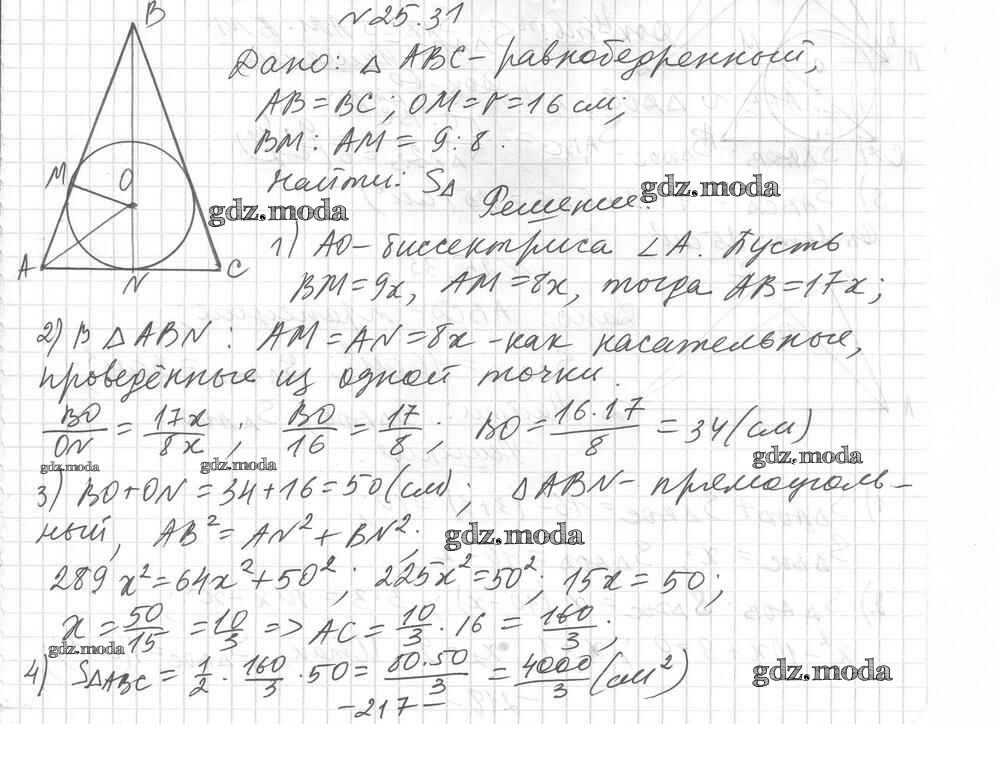 N25.31
B
Дано: △ ABC - равнобедренный,
AB = BC; OM = r = 16 см;
BM : AM = 9 : 8.
Найти: S△
gdz.moda
Решение:
M
O
gdz.moda
A
N
C
1) AO - биссектриса ∠A. Пусть
BM = 9x, AM = 8x, тогда AB = 17x;
2) В △ ABN: AM = AN = 8x - как касательные,
проведённые из одной точки.
BO/ON = 17x/8x; BO/16 = 17/8; BO = 16·17/8 = 34 (см)
gdz.moda
gdz.moda
gdz.moda
3) BO + ON = 34 + 16 = 50 (см); △ABN - прямоуголь-
ный, AB² = AN² + BN²;
gdz.moda
289x² = 64x² + 50²; 225x² = 50²; 15x = 50;
x = 50/15 = 10/3 => AC = 10/3 · 16 = 160/3;
gdz.moda
4) S△ABC = 1/2 · 160/3 · 50 = 80·50/3 = 4000/3 (см²)
gdz.moda
-217-